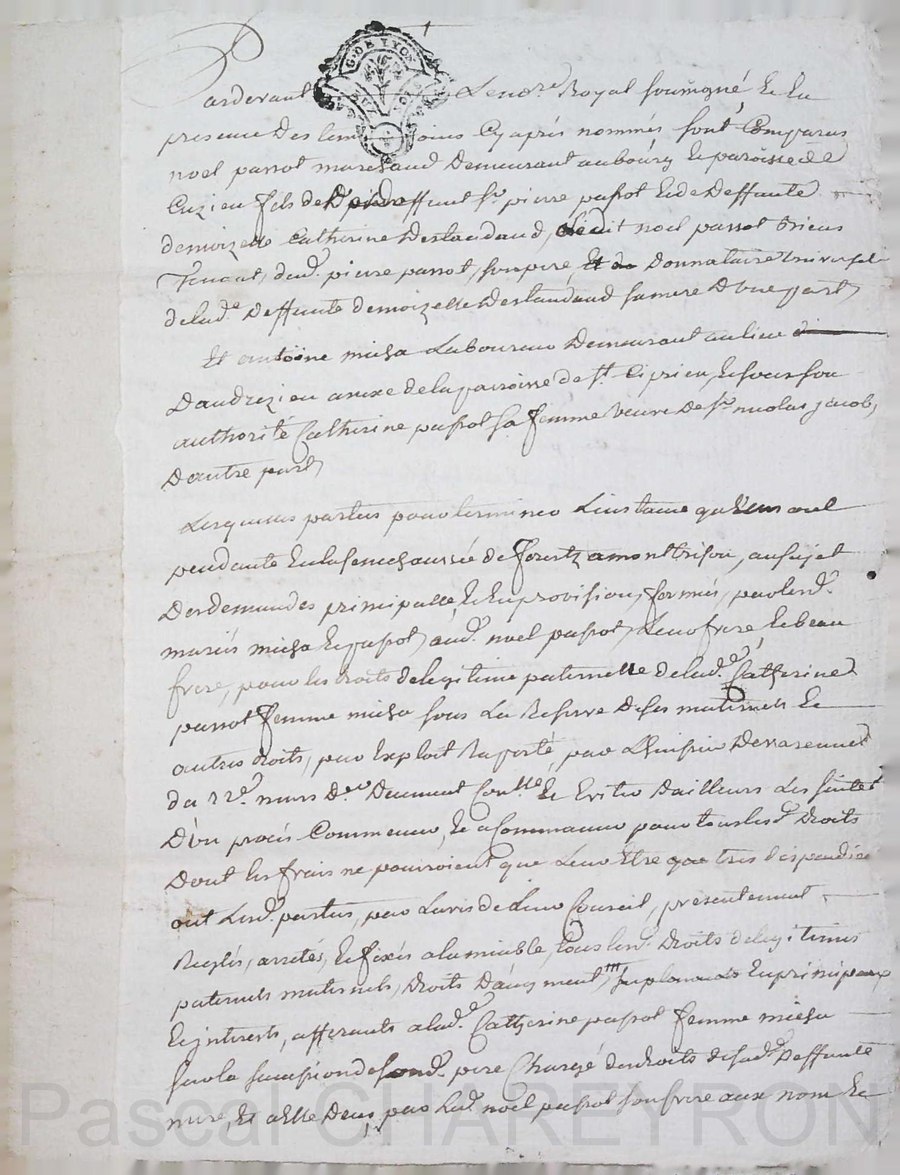 G. DE LYON
Pardevant Le no.re Royal soussigné Et En
presence Des temoins Cy après nommés sont Comparus
noel parrot marchand Demeurant au bourg Et paroisse de
Cuzieu fils de deffunt S.r pierre parrot Et de Deffunte
demoizelle Catherine Deslandaud, ledit noel parrot
dud. pierre parrot, son pere, Et Donnataire universel
de lad.e Deffunte demoizelle Deslandaud sa mere D'une part
Et antoine Laboureur Demeurant au lieu
D'andrezieu annexe de la parroisse de S.t Ciprien, Et sous son
authorité Catherine parrot sa femme veuve de S.r nicolas jacob,
D'autre part
Lesquelles parties pour terminer L'instance
pendante En la senechaussée de forestz a montbrison, au sujet
Des demandes principalle Et En provision, formés, par lesd.
mariés Et parrot, aud. noel parrot, Leur frere Et beau
frere, pour les droits de legitime paternelle de lad.e Catherine
parrot femme sous La Reserve De ses maternels Et
autres droits, par Exploit par L'huissier
du 22.e mars D.er Et Eviter D'ailleurs Les suites
D'un procès Commencé, Et a Commancer pour tous lesd. Droits
Dont les frais ne pourroient que Leur Être que tres dispendieux
ont Lesd. parties, par L'avis de Leur Conseil, presentement
Reglés, arretés, Et fixés a l'amiable, tous les Droits de legitimes
paternels maternels, Droits D'augment, En principaux
Et jnterests, afferants a lad.e Catherine parrot femme
sur la succession de sond. pere Chargé des droits de sad.e Deffunte
mere, Et a Elle Deus, par Led. noel parrot son frere aux nom Et
Pascal CHAREYRON